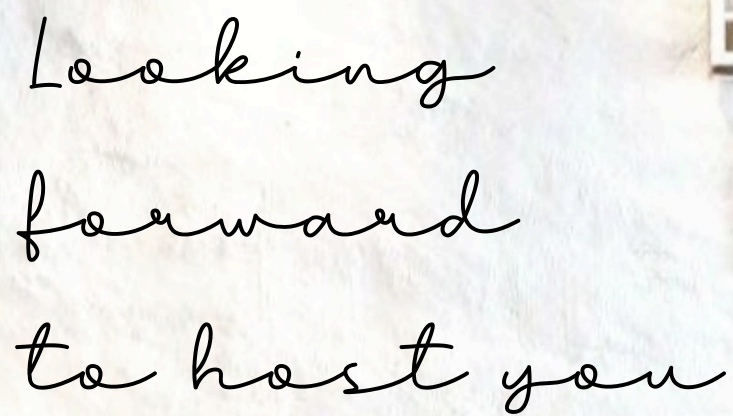 Looking
forward
to host you